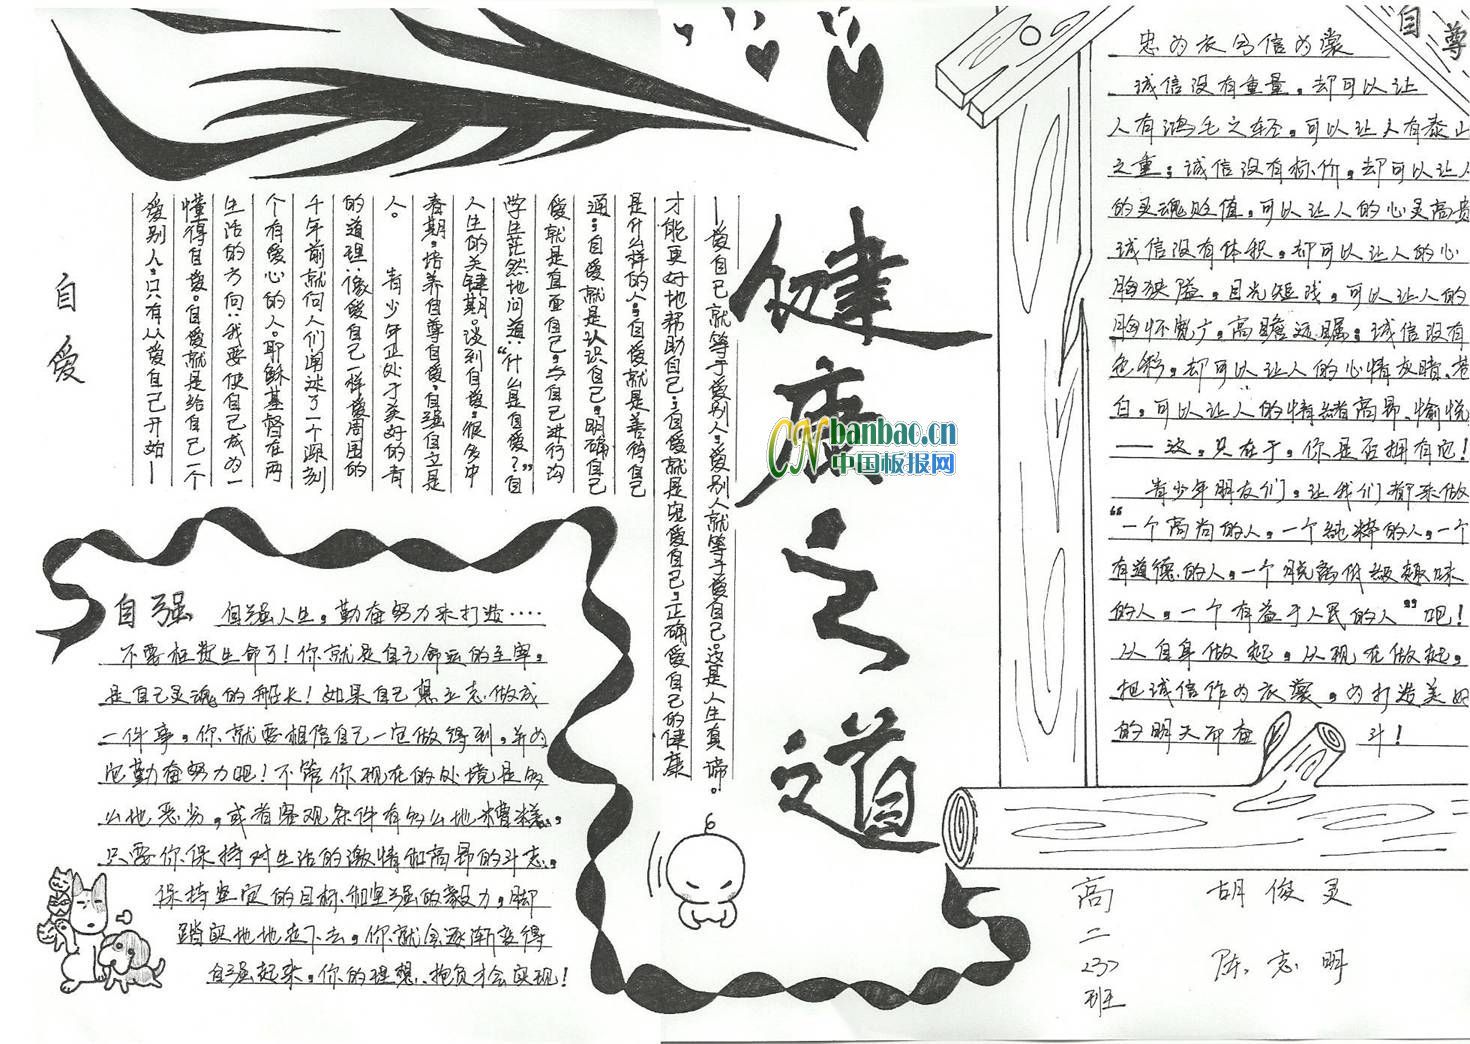 健康之道
自爱
爱别人,只有从爱自己开始——
懂得自爱。自爱就是给自己一个
生活的方向:我要使自己成为一
个有爱心的人。耶稣基督在两
千年前就向人们阐述了一个深刻
的道理:像爱自己一样爱周围的
人。 青少年正处于美好的青
春期,培养自尊自爱,自强自立是
人生的关键期。谈到自爱,很多中
学生茫然地问道:“什么是自爱?”自
爱就是直面自己,与自己进行沟
通;自爱就是认识自己,明确自己
是什么样的人;自爱就是善待自己
才能更好地帮助自己;自爱就是宠爱自己,正确爱自己的健康
——爱自己就等于爱别人,爱别人就等于爱自己,这是人生真谛。
自强 自强人生,勤奋努力来打造……
不要枉费生命了!你就是自己命运的主宰,
是自己灵魂的船长!如果自己想立志做成
一件事,你就要相信自己一定做得到,并为
它勤奋努力吧!不管你现在的处境是多
么地恶劣,或者客观条件有多么地糟糕,
只要你保持对生活的激情和高昂的斗志,
保持坚定的目标和坚强的毅力,脚
踏实地地走下去,你就会逐渐变得
自强起来,你的理想、抱负才会实现!
自尊
忠为衣兮信为裳
诚信没有重量,却可以让
人有鸿毛之轻,可以让人有泰山
之重;诚信没有标价,却可以让人
的灵魂贬值,可以让人的心灵高贵
诚信没有体积,却可以让人的心
胸狭隘,目光短浅,可以让人的
胸怀宽广,高瞻远瞩;诚信没有
色彩,却可以让人的心情灰暗、苍
白,可以让人的情绪高昂、愉悦
——这,只在于,你是否拥有它!
青少年朋友们,让我们都来做
“一个高尚的人,一个纯粹的人,一个
有道德的人,一个脱离低级趣味
的人,一个有益于人民的人”吧!
从自身做起,从现在做起,
把诚信作为衣裳,为打造美好
的明天而奋斗!
高二〈3〉班
胡俊灵
陈志明
CN banbao.cn
中国板报网